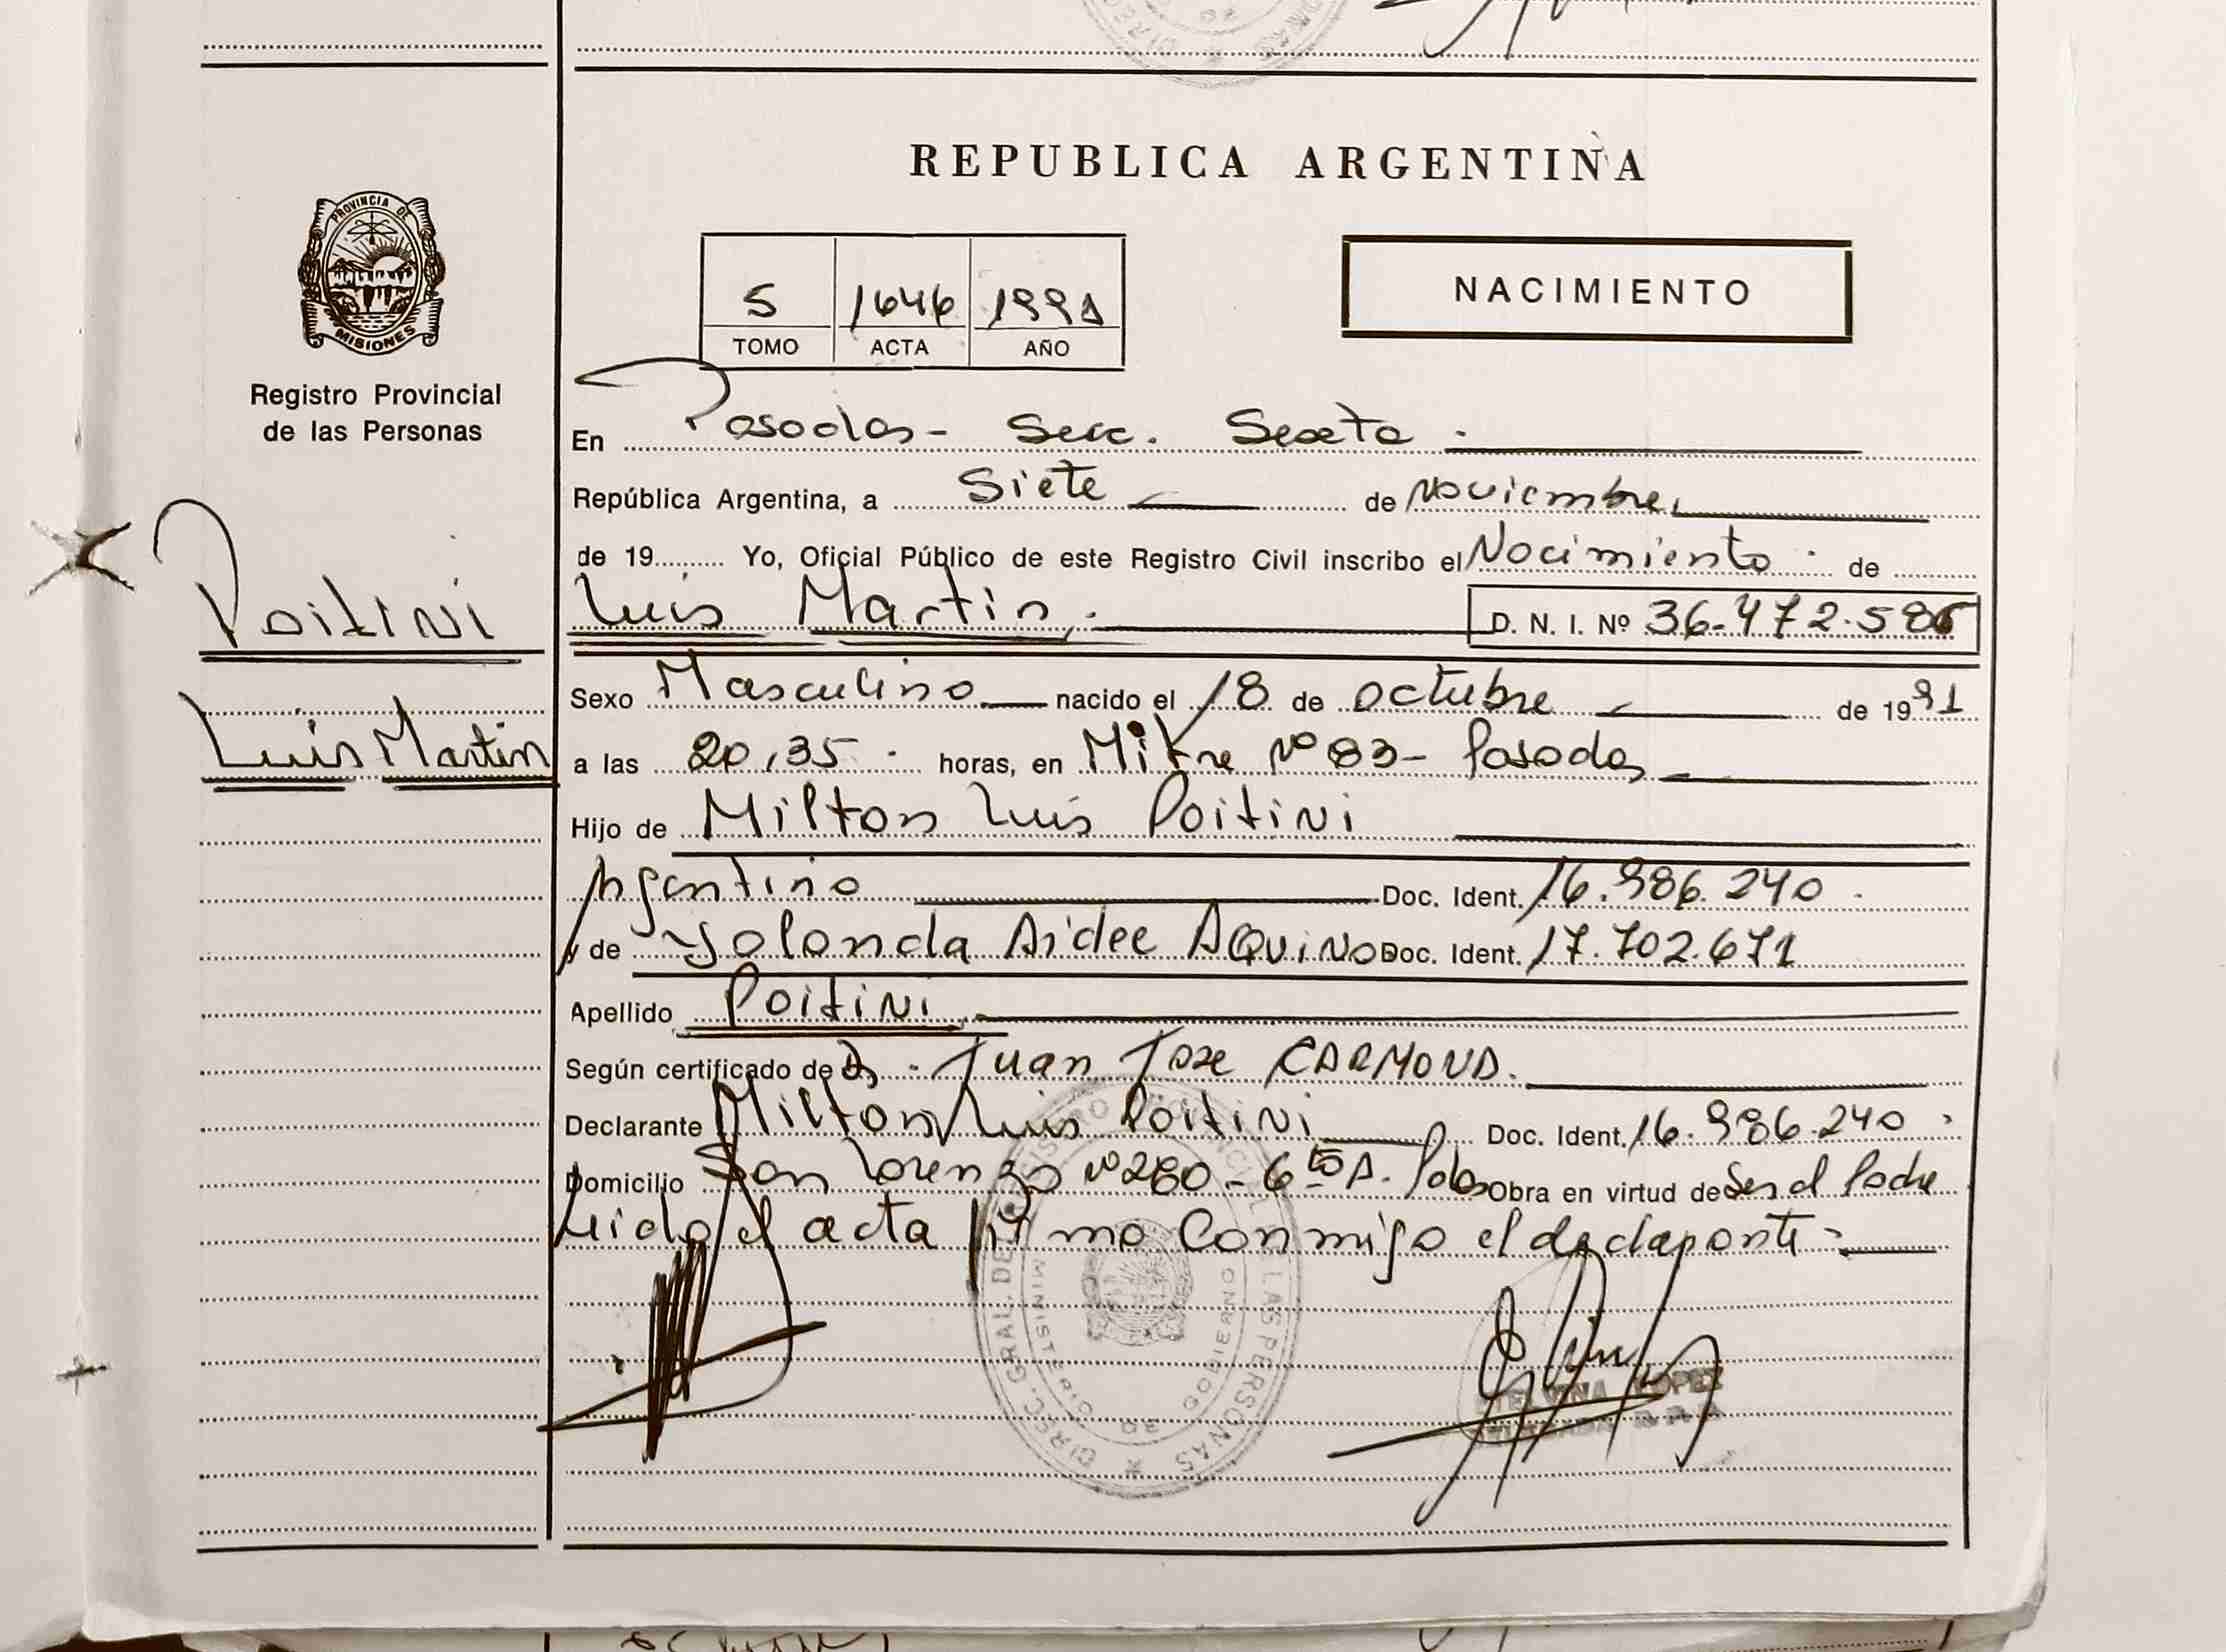 REPUBLICA ARGENTINA
PROVINCIA DE
MISIONES
Registro Provincial
de las Personas
5 1646 1991
TOMO ACTA AÑO
NACIMIENTO
En Posadas - Secc. Sexta
República Argentina, a Siete de Noviembre
de 19 Yo, Oficial Público de este Registro Civil inscribo el Nacimiento de
Poitini
Luis Martin
Luis Martin D. N. I. Nº 36.472.586
Sexo Masculino nacido el 18 de octubre de 1991
a las 20,35 horas, en Mitre Nº 83 - Posadas
Hijo de Milton Luis Poitini
Argentino Doc. Ident. 16.986.240
y de Yolanda Aidee AQUINO Doc. Ident. 17.702.671
Apellido Poitini
Según certificado de Dr. Juan Jose CARMONA.
Declarante Milton Luis Poitini Doc. Ident. 16.986.240
Domicilio San Lorenzo Nº 280 - 6to A. Pdas Obra en virtud de Ser el Padre
Leida el acta firma conmigo el declarante
DIREC. GRAL. DEL REGISTRO PROVINCIAL DE LAS PERSONAS
MINISTERIO DE GOBIERNO
LOPEZ